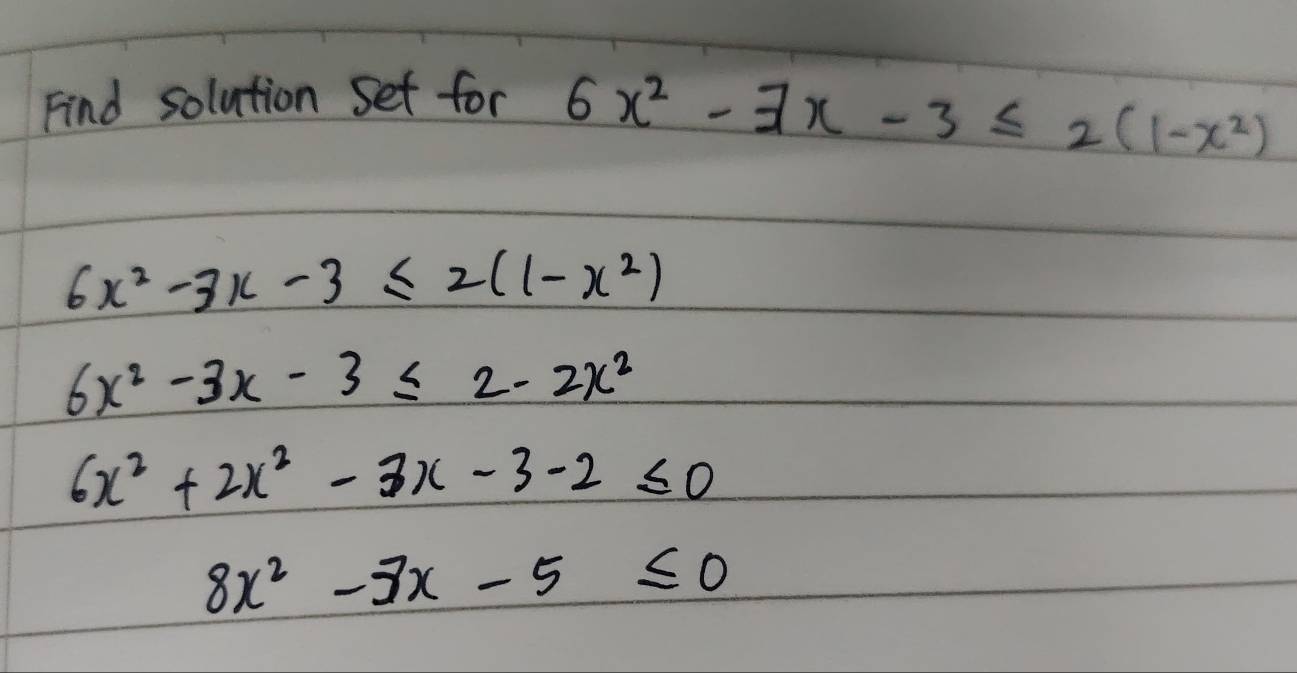 Find solution set for 6x² - 3x - 3 ≤ 2(1-x²)
6x² - 3x - 3 ≤ 2(1-x²)
6x² - 3x - 3 ≤ 2 - 2x²
6x² + 2x² - 3x - 3 - 2 ≤ 0
8x² - 3x - 5 ≤ 0